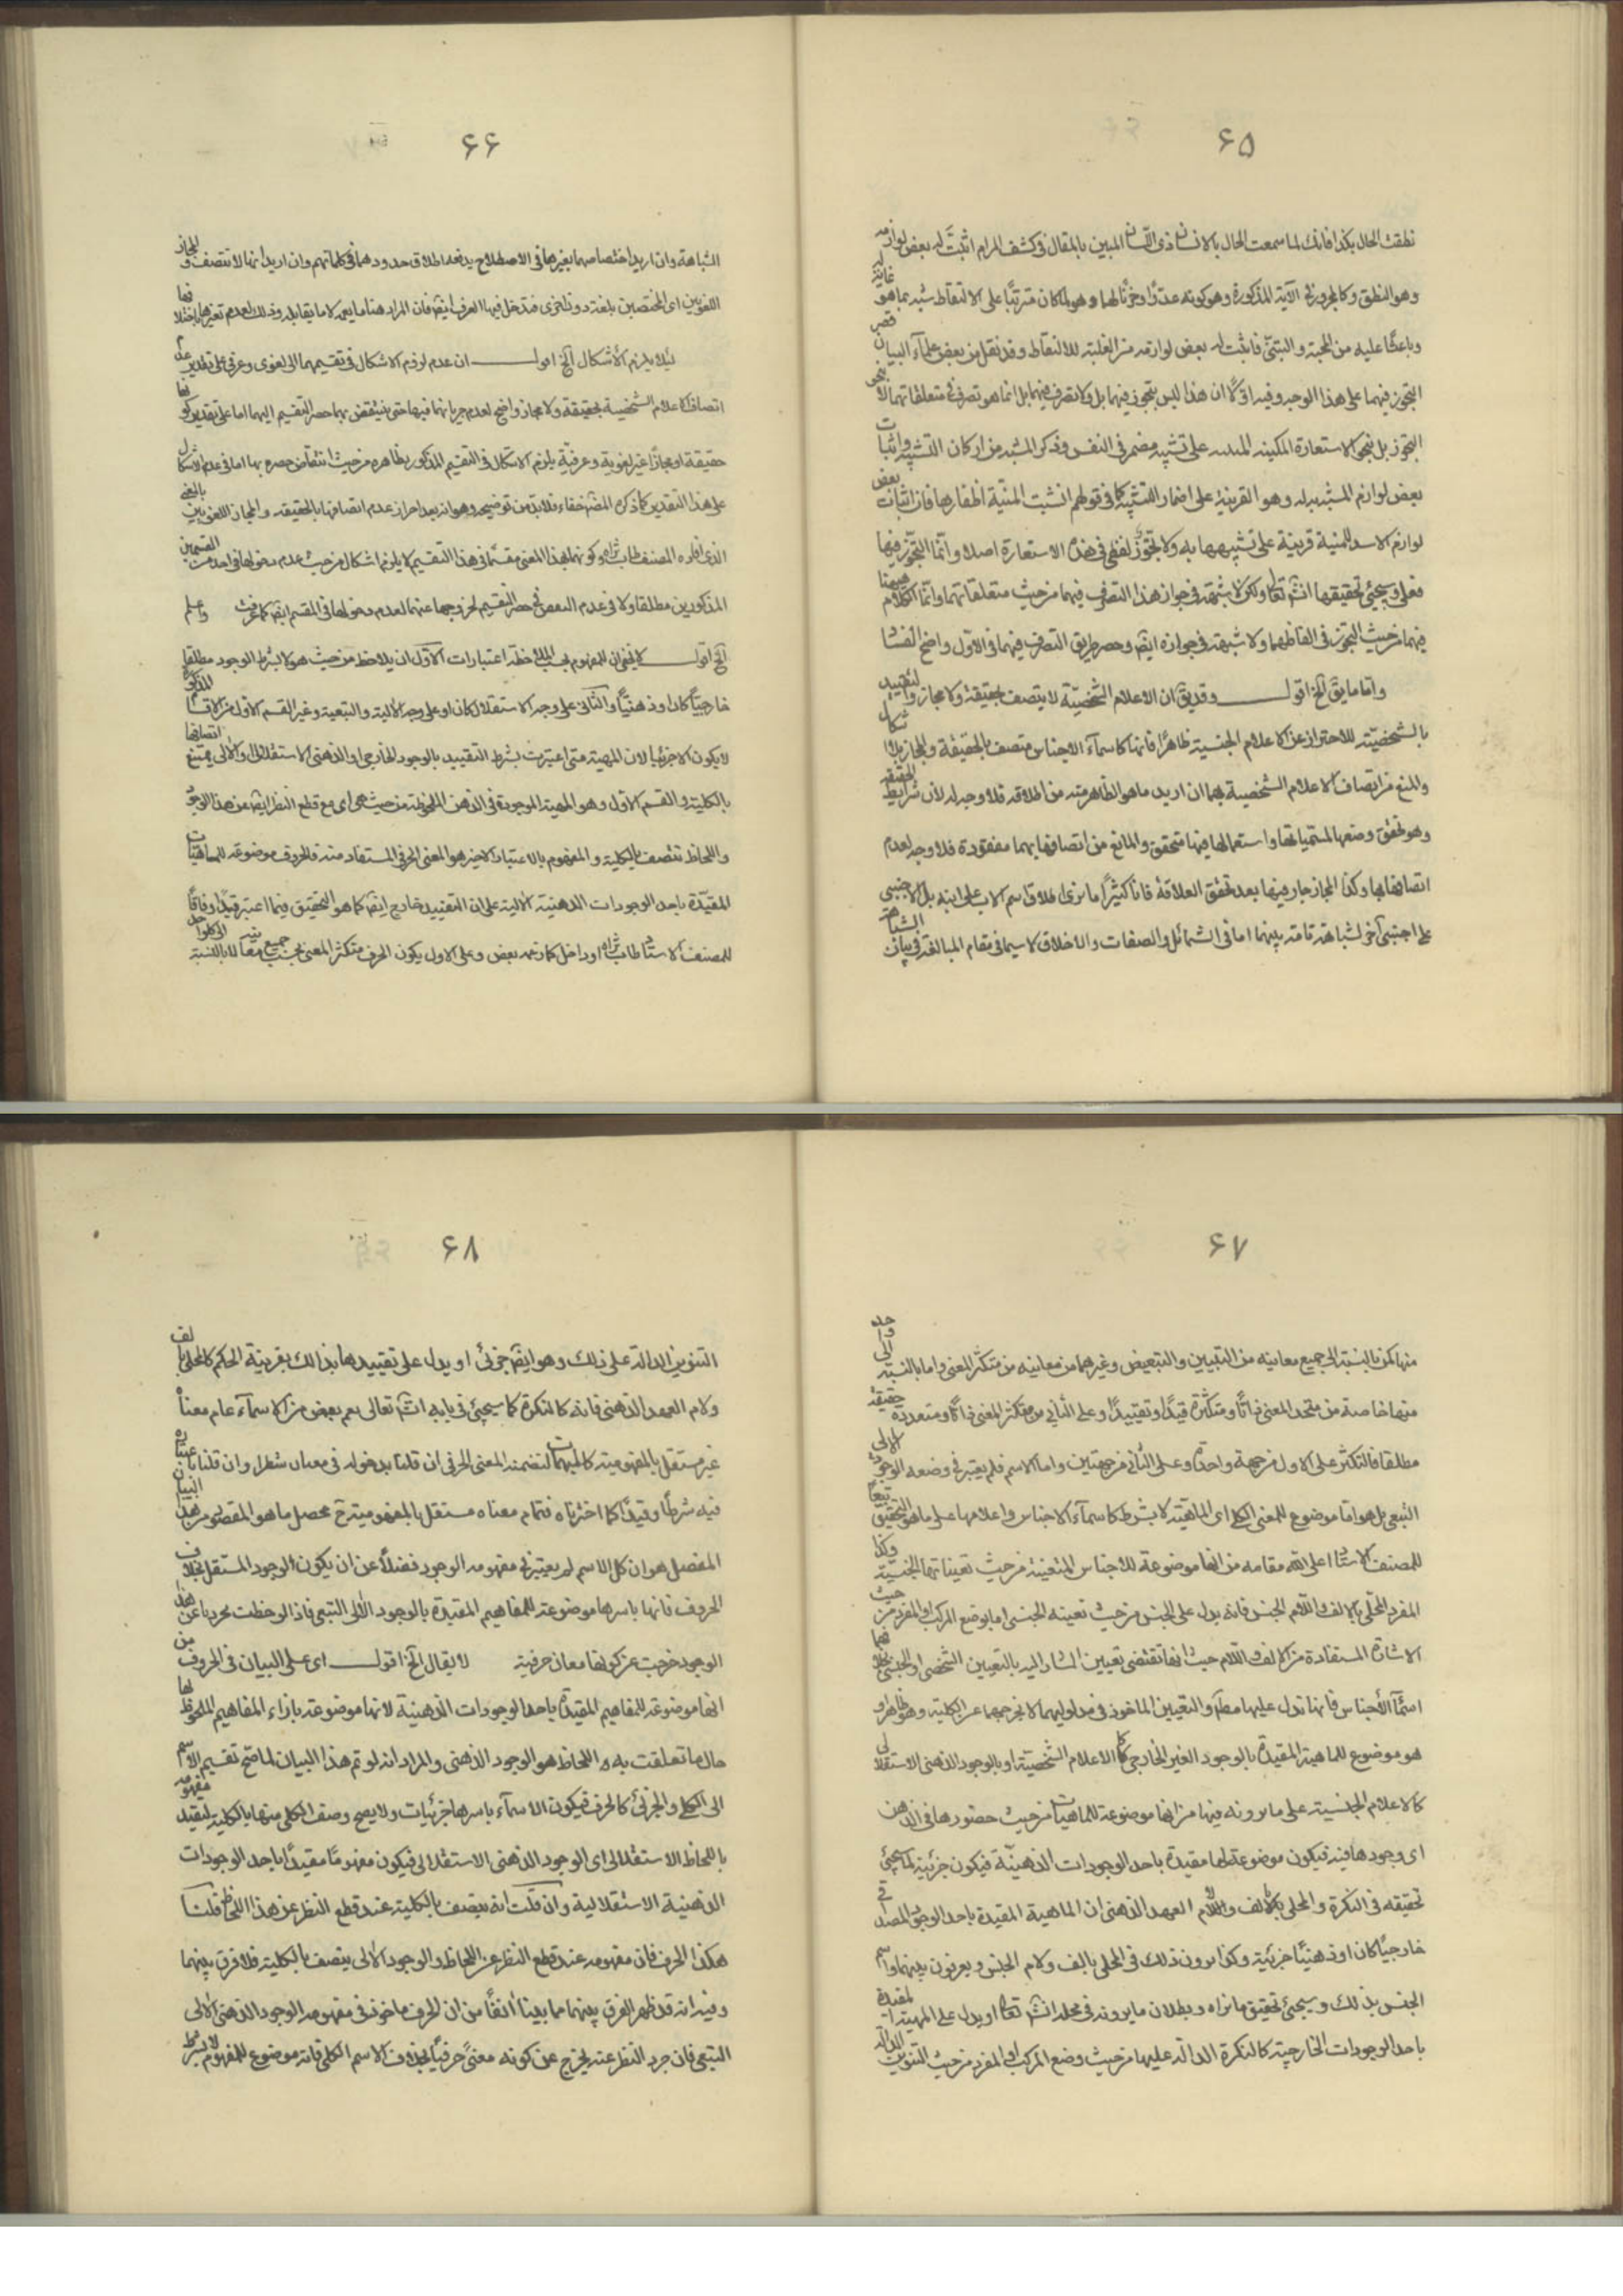 ۶۵
نطقت الحال بكذا فانك لما سمعت الحال بالانسان ذى اللسان المبين بالمقال فى كشف المرام اثبت له بعض لوازمه
وهو النطق وكالمجرور فى الآية المذكورة وهو كونه عدوّا وحزنًا لهما وهو لما كان مترتبًا على الالتقاط شبه بما هو غاية له
وباعثًا عليه من المحبة والتبنّى فاثبت له بعض لوازمه من الغلبة للالتقاط وقد نقل من بعض علماء البيان قصر
التجوز فيهما على هذا الوجه وفيه اوّلًا ان هذا ليس بتجوز فيهما بل ولا تصرف فيهما بل انما هو تصرف فى متعلقاتهما لا بنحو
التجوز بل بنحو الاستعارة المكنية على تشبيه مضمر فى النفس وذكر المشبه من اركان التشبيه واثبات
بعض لوازم المشبه به له وهو القرينة على اضمار التشبيه كما فى قولهم انشبت المنية اظفارها فان اثبات بعض
لوازم الاسد للمنية قرينة على تشبيهها به ولا تجوّز لفظى فى هذه الاستعارة اصلا وانما التجوّز فيها
فعلى وسيجئ تحقيقها انشاء تعالى ولكن لا شبهة فى جواز هذا التصرف فيهما من حيث متعلقاتهما وانما الكلام هيهنا
فيهما من حيث التجوز فى الفاظهما ولا شبهة فى جوازه ايضا وحصر طريق التصرف فيهما فى الاول واضح الفساد
واما ما يق الخ اقول وقد يق ان الاعلام الشخصيّة لا يتصف بحقيقة ولا مجاز والتقييد
بالشخصيّة للاحتراز عن الاعلام الجنسية ظاهرًا فانها كاسماء الاجناس متصف بالحقيقة والمجاز بلا اشكال
والمنع من اتصاف الاعلام الشخصية بهما ان اريد ما هو الظاهر منه من اطلاقه فلا وجه له لان شرايط الحقيقة
وهو تحقق وضعها لمسمياتها واستعمالها فيها متحقق والمانع من اتصافها بهما مفقودة فلا وجه لعدم
اتصافها بها وكذا المجاز جار فيها بعد تحقق العلاقة فانا كثيرًا ما نرى اطلاق اسم الاب على ابنه بل الاجنبى
على اجنبى آخر لشباهة تامة بينهما اما فى الشمائل والصفات والاخلاق لا سيما فى مقام المبالغة فى بيان الشباهة
۶۶
الشباهة وان اريد اختصاصهما بغيرها فى الاصطلاح يدفعه اطلاق حدودهما فى كلماتهم وان اريد انها لا تتصف والمجاز
اللغويين اى المختصين بلغة دون اخرى فتدخل فيها العرف ايضا فان المراد هنا ما يعمه لا ما يقابله وذلك لعدم تغيرها باختلافها
لئلا يلزم الاشكال الخ اقول ان عدم لزوم الاشكال فى تقسيمهما الى لغوى وعرفى على تقدير عدم
اتصاف الاعلام الشخصية بحقيقة ولا مجاز واضح لعدم جريانهما فيها حتى ينتقض بهما حصر التقسيم اليهما اما على تقدير كونها
حقيقة او مجازا غير لغوية وعرفية يلزم الاشكال فى التقسيم المذكور بظاهره من حيث انتقاض حصره بها اما فى عدم الاشكال
على هذا التقدير كما ذكره المصنف خفاء فلابد من توضيحه وهو انه بعد احراز عدم اتصافها بالحقيقة والمجاز اللغويين بالمعنى
الذى افاده المصنف طاب ثراه وكونهما بهذا المعنى مقسمًا فى هذا التقسيم لا يلزم اشكال من حيث عدم دخولها فى احد من القسمين
المذكورين مطلقا ولا فى عدم النقض فى حصر التقسيم لخروجها عنهما لعدم دخولها فى المقسم ايضا كما عرفت واعلم
الخ اقول لا يخفى ان للمفهوم بحسب الملاحظة اعتبارات الاول ان يلاحظ من حيث هو لا بشرط الوجود مطلقا
خارجيًا كان او ذهنيًا والثانى على وجه الاستقلال كان او على وجه الآلية والتبعية وغير القسم الاول من الاقسام المذكورة
لا يكون الا جزئيا لان المهية متى اعتبرت بشرط التقييد بالوجود الخارجى او الذهنى الاستقلالى والآلى يمتنع اتصافها
بالكلية والقسم الاول وهو المهية الموجودة فى الذهن الملحوظة من حيث هى اى مع قطع النظر ايضا عن هذا الوجود
واللحاظ تتصف بالكلية والمفهوم بالاعتبار الاخير هو المعنى الحرفى المستفاد منه فالحروف موضوعة للماهيات
المقيّدة باحد الوجودات الذهنية الآلية على ان التقييد خارج ايضا كما هو التحقيق فيما اعتبر قيدًا وفاقًا
للمصنف الاستاد طاب ثراه او داخل كما زعمه بعض وعلى الاول يكون الحرف متكثر المعنى بحسب جميع معانيه بالنسبة الى كل واحد
۶۷
منها كمن بالنسبة الى جميع معانيه من التبيين والتبعيض وغيرهما من معانيه من متكثر المعنى واما بالنسبة الى واحد
منها خاصة من متحد المعنى ذاتًا ومتكثرة قيدًا وتقييدًا وعلى الثانى من متكثر المعنى ذاتًا ومتعددة حقيقة
مطلقا فالتكثر على الاول من جهة واحدة وعلى الثانى من جهتين واما الاسم فلم يعتبر فى وضعه الوجود الآلى
التبعى بل هو اما موضوع للمعنى الكلى اى الماهية لا بشرط كاسماء الاجناس واعلامها على ما هو التحقيق تبعًا
للمصنف الاستاد اعلى الله مقامه من انها موضوعة للاجناس المتعينة من حيث تعيناتها الجنسية وكذا
المفرد المحلى بالالف واللام الجنس فانه يدل على الجنس من حيث تعينه الجنسى اما بوضع المركب او المفرد من حيث
الاشارة المستفادة من الالف واللام حيث انها تقتضى تعيين المشار اليه بالتعيين الشخصى او الجنسى بخلاف
اسماء الاجناس فانها تدل عليها مطلقا والتعيين الماخوذ فى مدلوليهما لا يخرجهما عن الكلية وهو ظاهر او
هو موضوع للماهية المقيدة بالوجود الغير الخارجى كما الاعلام الشخصية او بالوجود الذهنى الاستقلالى
كالاعلام الجنسية على ما يرونه فيها من انها موضوعة للماهيات من حيث حضورها فى الذهن
اى وجودها فيه فيكون موضوعة لها مقيدة باحد الوجودات الذهنيّة فيكون جزئية كما سيجئ
تحقيقه فى النكرة والمحلى بالالف واللام العهد الذهنى ان الماهية المقيدة باحد الوجود المصداقى
خارجيًا كان او ذهنيًا جزئية وكذا يرون ذلك فى المحلى بالف ولام الجنس ويعرفون بينهما واسم
الجنس بذلك وسيجئ تحقيق ما نراه وبطلان ما يرونه فى محله انشاء تعالى او يدل على المهية المقيدة
باحد الوجودات الخارجية كالنكرة الدالة عليها من حيث وضع المركب او المفرد من حيث التنوين الدالة
۶۸
التنوين الدالة على ذلك وهو ايضا جزئى او يدل على تقييدها بذلك بقرينة الحكم كالمحلى بالف
ولام العهد الذهنى فانه كالنكرة كما سيجئ فى بابه انشاء تعالى نعم بعض من الاسماء عام معناه
غير مستقل بالمفهومية كالمبهمات لتضمنه المعنى الحرفى ان قلنا بدخوله فى معناه شطرا وان قلنا باعتباره
فيه شرطًا وقيدًا كما اخترناه فتمام معناه مستقل بالمفهومية ثم محصل ما هو المقصود من هذا البيان
المفصل هو ان كل الاسم لم يعتبر فى مفهومه الوجود فضلًا عن ان يكون الوجود المستقل بخلاف
الحروف فانها باسرها موضوعة للمفاهيم المقيدة بالوجود الآلى التبعى فاذا لوحظت مجردا عن هذا
الوجود خرجت عن كونها معان حرفية لا يقال الخ اقول اى على البيان فى الحروف من
انها موضوعة للمفاهيم المقيدة باحد الوجودات الذهنية لانها موضوعة بازاء المفاهيم الملحوظة
حال ما تعلقت به واللحاظ هو الوجود الذهنى والمراد انه لو تم هذا البيان لما صح تقسيم الاسم
الى الكلى والجزئى كالحرف فيكون الاسماء باسرها جزئيات ولا يصح وصف الكلى منها بالكلية لتقييد مفهومه
باللحاظ الاستقلالى اى الوجود الذهنى الاستقلالى فيكون مفهومًا مقيدًا باحد الوجودات
الذهنية الاستقلالية وان قلت انه يتصف بالكلية عند قطع النظر عن هذا اللحاظ قلنا
هكذا الحرف فان مفهومه عند قطع النظر عن اللحاظ والوجود الآلى يتصف بالكلية فلا فرق بينهما
وفيه انه قد ظهر الفرق بينهما مما بينا آنفًا من ان الحرف ماخوذ فى مفهومه الوجود الذهنى الآلى
التبعى فان جرد النظر عنه يخرج عن كونه معنىً حرفيًا بخلاف الاسم الكلى فانه موضوع للمفهوم لا بشرط